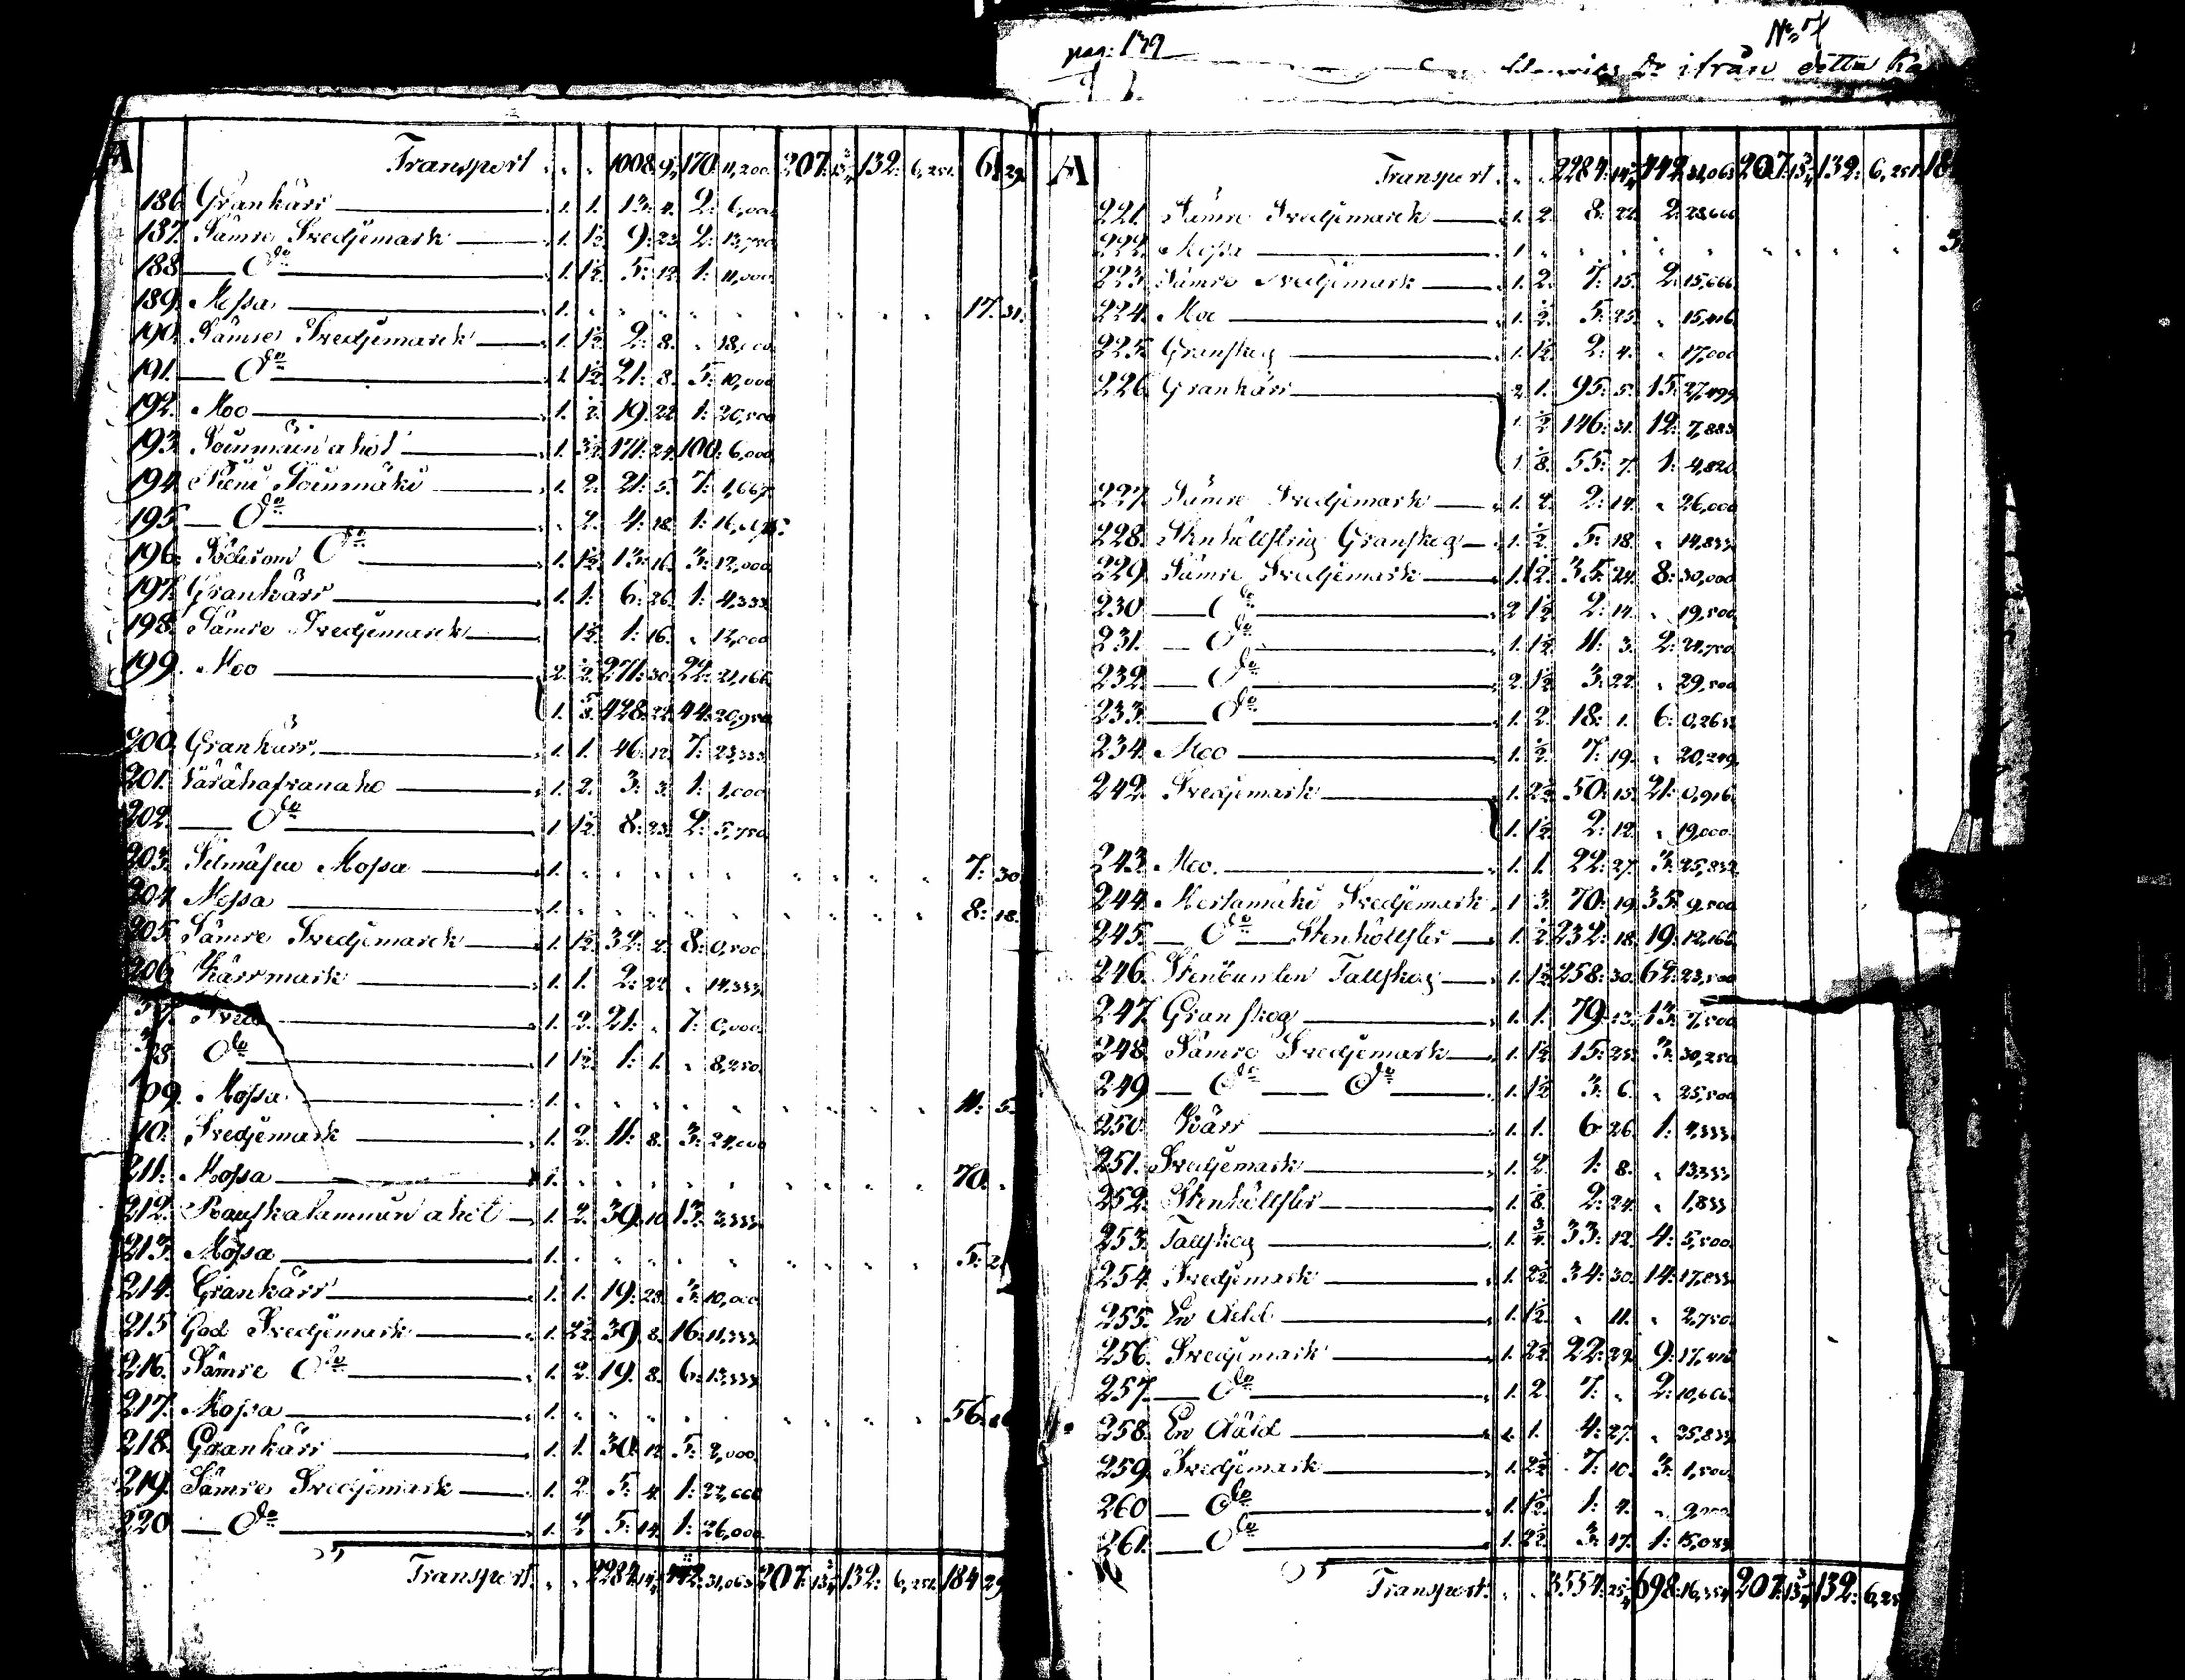 pag: 139
ifrån detta
A Transport 1008: 9 170: 11,200 207: 13 3/4 132: 6,251 61 29
186. Grankärr 1. 1. 13: 4. 2: 6,000
187. Sämre Svedjemark 1. 1½ 9: 23. 2: 13,750
188. Do 1. 1½ 5: 12. 1: 11,000
189. Mossa 1. 17. 31.
190. Sämre Svedjemark 1. 1½ 2: 8. 18,000
191. Do 1. 1½ 21: 8. 5: 10,000
192. Moo 1. ½ 19: 22. 1: 20,500
193. 1. 3½ 171: 24. 100: 6,000
194. 1. 2. 21: 5. 7: 1,667
195. Do 2. 4: 18. 1: 16
196. Do 1. 1½ 13: 16. 3: 12,000
197. Grankärr 1. 1. 6: 26. 1: 4,333
198. Sämre Svedjemark 1½ 1: 16. 12,000
199. Moo 2. ½ 271: 30. 22: 21,166
1. 428: 22. 44: 20,950
200. Grankärr 1. 1. 46: 12. 7: 23,333
201. 1. 2. 3: 3. 1: 1,000
202. Do 1. 1½ 8: 23. 2: 5,750
203. Mossa 1. 7: 30
204. Mossa 1. 8: 18.
205. Sämre Svedjemark 1. 1½ 32: 2. 8: 0,500
206. Kärrmark 1. 1. 2: 22. 14,333
1. 2. 21: 7: 0,000
Do 1. 1½ 1: 1. 8,250
09. Mossa 1. 11: 5.
10. Svedjemark 1. 2. 11: 8. 3: 24,000
211. Mossa 1. 70.
212. 1. 2. 39: 10. 13: 3,333
213. Mossa 1. 5: 2
214. Grankärr 1. 1. 19: 28. 3: 10,000
215 God Svedjemark 1. 2½ 39: 8. 16: 11,333
216. Sämre Do 1. 2. 19: 8. 6: 13,333
217. Mossa 1. 56:
218. Grankärr 1. 1. 30: 12. 5: 2,000
219. Sämre Svedjemark 1. 2. 5: 4. 1: 22,666
220 Do 1. 2. 5: 14. 1: 26,000
Transport 2284: 442: 31,063 207: 13 3/4 132: 6,251 184 29
A Transport 2284: 442: 31,063 207: 13 3/4 132: 6,251 18
221. Sämre Svedjemark 1. 2. 8: 22. 2: 28,666
222. Mossa 1
223. Sämre Svedjemark 1. 2. 7: 15. 2: 15,666
224. Moo 1. ½ 5: 25. 15,416
225. Granskog 1. 1½ 2: 4. 17,000
226. Grankärr 2. 1. 95: 5. 15: 27,499
1. ½ 146: 31. 12: 7,883
1. 55: 7. 1: 4,820
227. Sämre Svedjemark 1. 2. 2: 14. 26,000
228. Granskog 1. ½ 5: 18. 14,833
229 Sämre Svedjemark 1. 1½ 35: 24. 8: 30,000
230 Do 2 1½ 2: 14. 19,500
231. Do 1. 1½ 11: 3. 2: 24,750
232. Do 2. 1½ 3: 22. 29,500
233. Do 1. 2. 18: 1. 6: 0,26
234. Moo 1. ½ 7: 19. 20,249
242. Svedjemark 1. 2½ 50: 15. 21: 0,916
1. 1½ 2: 12. 19,000
243. Moo. 1. 1. 22: 27. 3: 25,832
244. Mertamäki Svedjemark 1 3. 70: 19. 35: 9,500
245. Do 1. ½ 232: 18. 19: 12,166
246. Stenbunden Tallskog 1. 1½ 258: 30. 62: 23,500
247. Granskog 1. 1. 79: 13. 13: 7,500
248. Sämre Svedjemark 1. 1½ 15: 25. 3: 30,250
249 Do Do 1. 1½ 3: 6. 25,500
250. Kärr 1. 1. 6: 26. 1: 4,333
251. Svedjemark 1. 2. 1: 8. 13,333
252. 1. 2: 24. 1,833
253. Tallskog 1. 3/4 33: 12. 4: 5,500
254. Svedjemark 1. 2½ 34: 30. 14: 17,833
255. En 1. 1½ 11. 2,750
256. Svedjemark 1. 2½ 22: 29. 9: 17,416
257. Do 1. 2. 7: 2: 10,666
258. En 1. 4: 27. 25,833
259. Svedjemark 1. 2½ 7: 10. 3: 1,500
260 Do 1. 1½ 1: 4.
261. Do 1. 2½ 3: 17. 1: 15,083
Transport: 3554: 698: 16,354 207: 13 3/4 132: 6,25